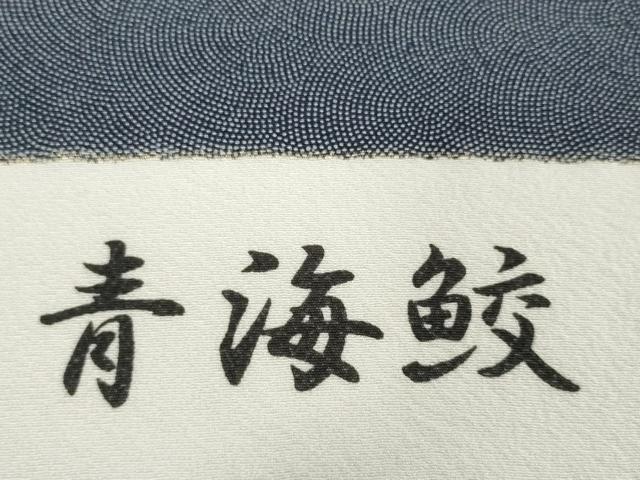 青海鮫